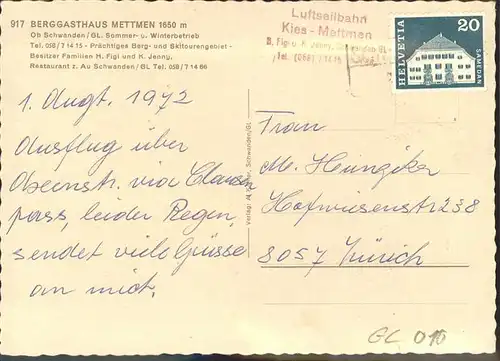 917 BERGGASTHAUS METTMEN 1650 m
Ob Schwanden/GL Sommer- u. Winterbetrieb
Tel. 058/7 14 15 - Prächtiges Berg- und Skitourengebiet -
Besitzer Familien H. Figi und K. Jenny,
Restaurant z. Au Schwanden/GL Tel. 058/7 14 66
Luftseilbahn
Kies - Mettmen
Tel. (058) 7 14 15
20
HELVETIA
SAMEDAN
1. Augt. 1972
Ausflug über
via Clausen
pass, leider Regen,
sendet viele Grüsse
an mich.
Schwanden/GL
Frau
M. Heiniger
Hofwiesenstr 238
8057 Zürich
GL 010